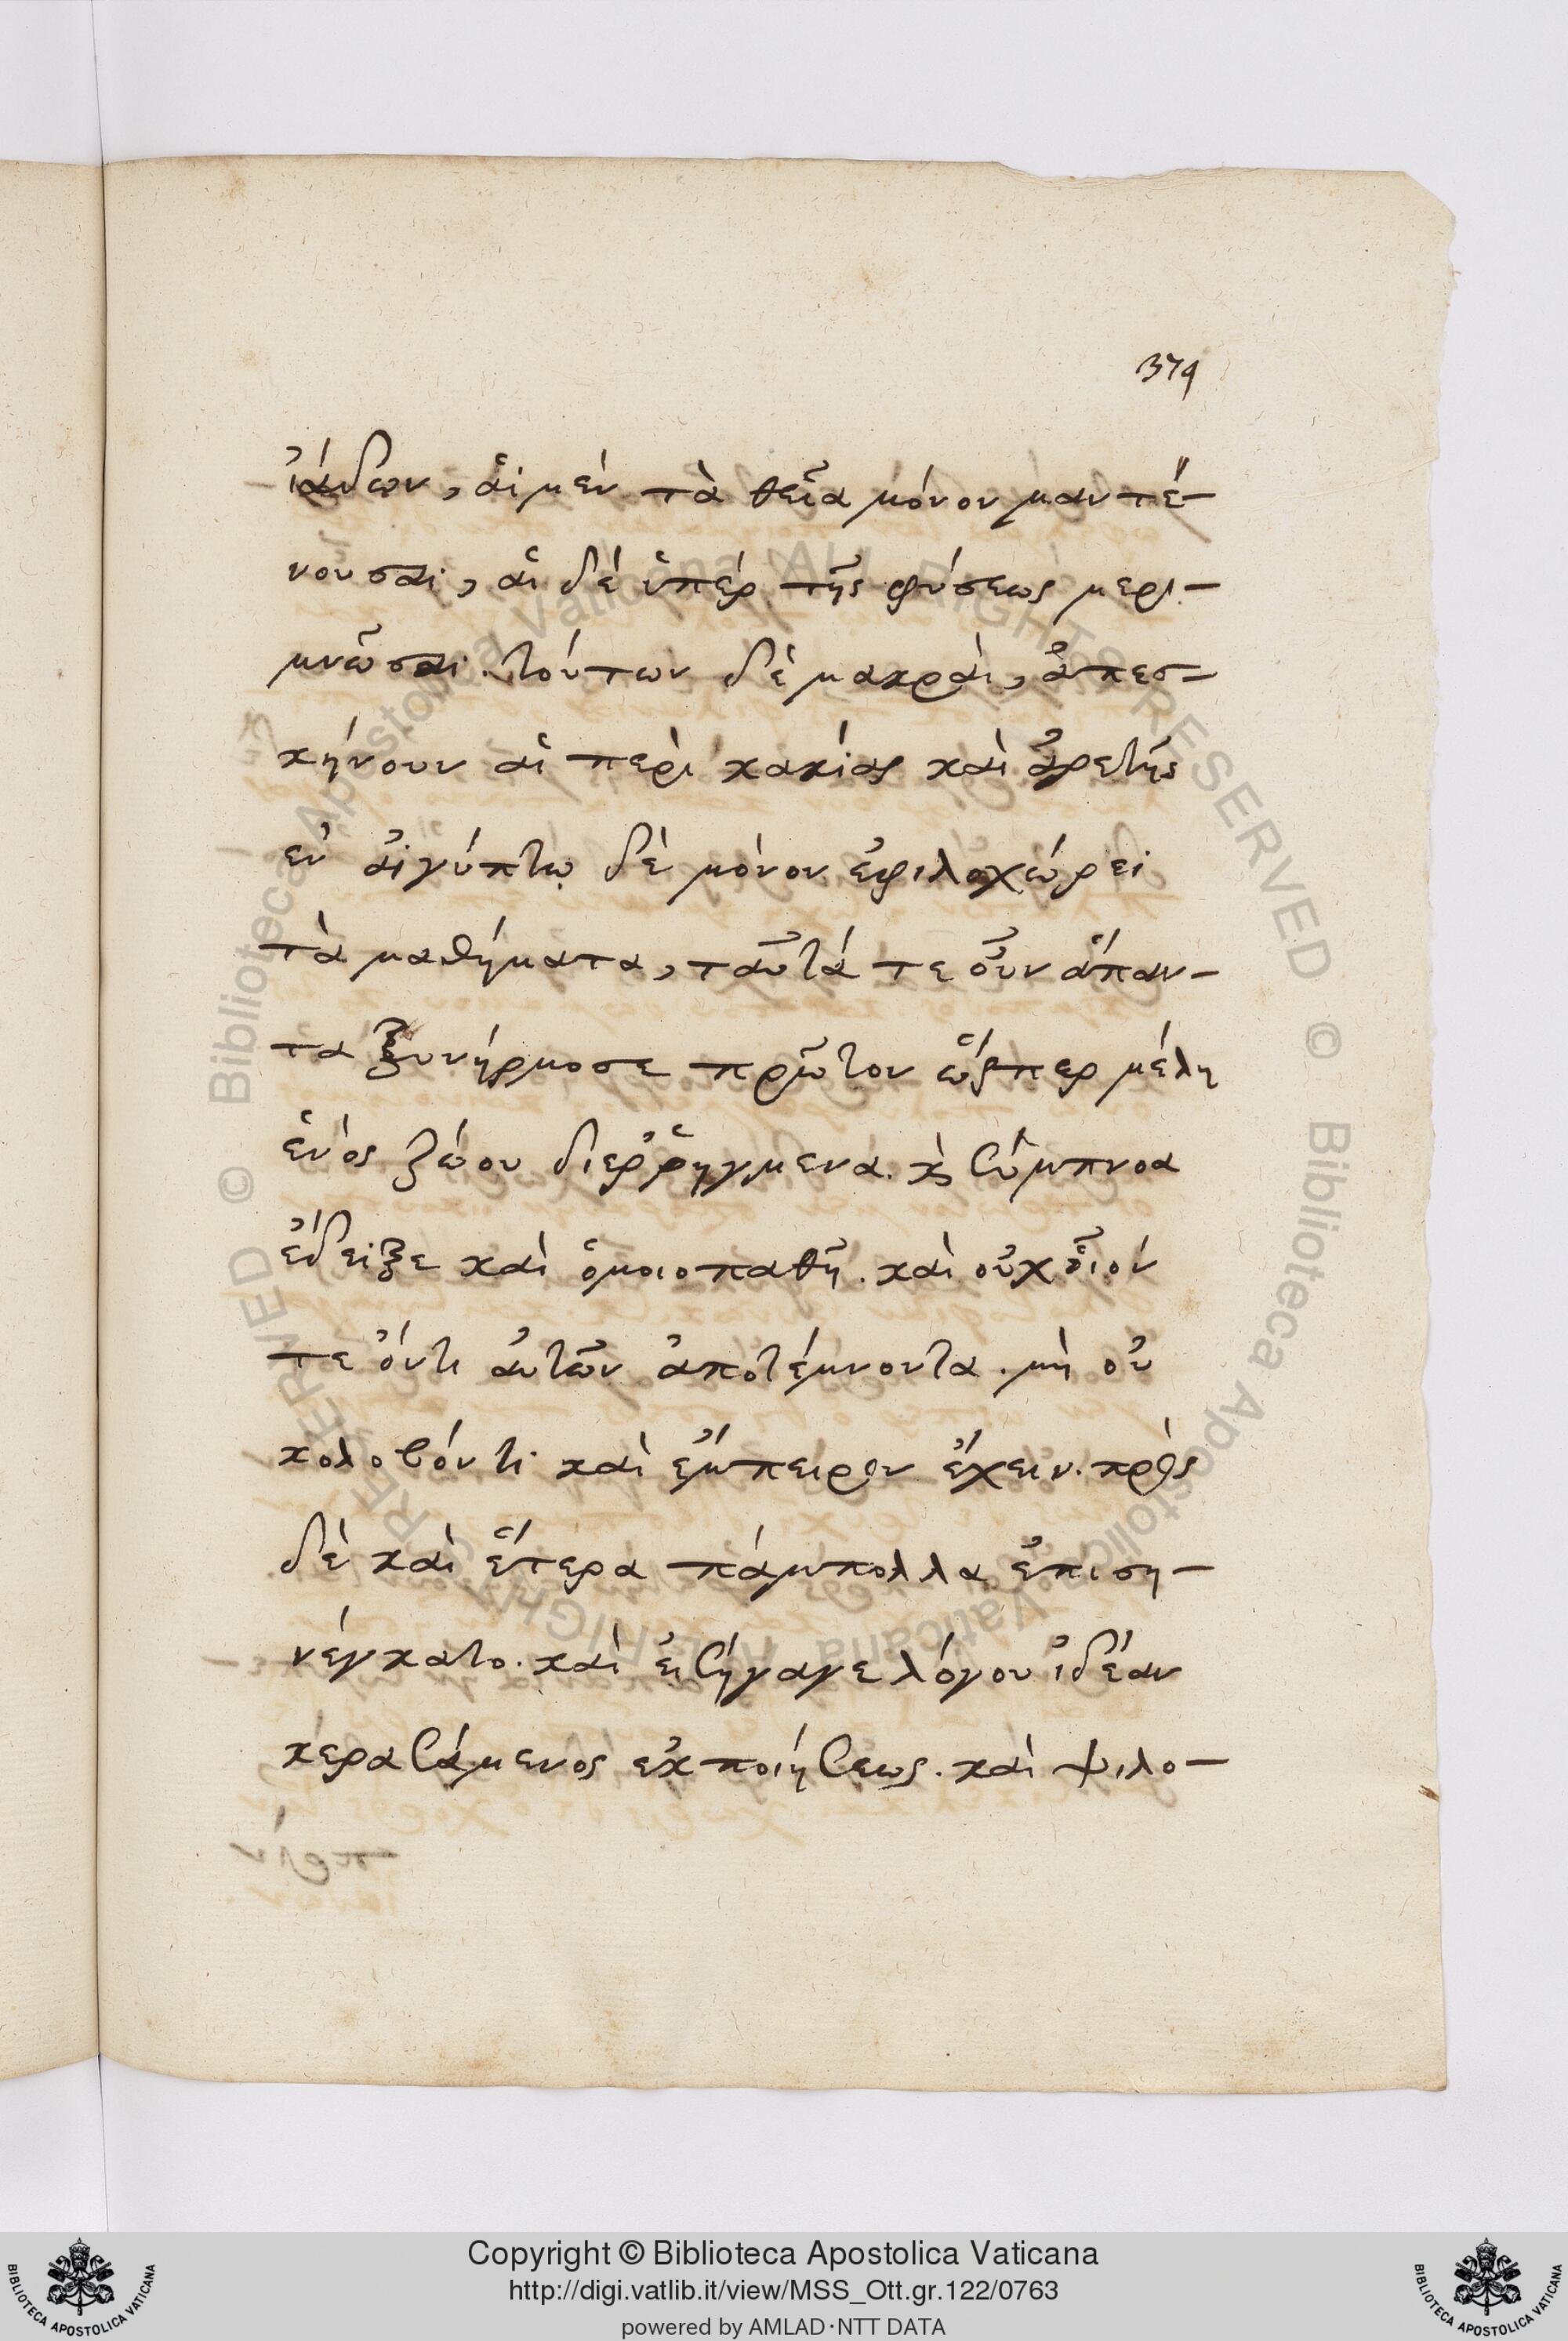 379
ἰάδων, αἱ μὲν τὰ θεῖα μόνον μαντέ-
νουσαι, αἱ δὲ ὑπὲρ τῆς φύσεως μερι-
μνῶσαι. τούτων δὲ μακρὰν, ἀπεσ-
κήνουν αἱ περὶ κακίας καὶ ἀρετῆς
ἐν αἰγύπτῳ δὲ μόνον ἐφιλοχώρει
τὰ μαθήματα, ταῦτά τε οὖν ἅπαν-
τα ξυνήρμοσε πρῶτον ὥσπερ μέλη
ἑνὸς ζώου διεῤῥηγμενα. κς σύμπνοα
ἔδειξε καὶ ὁμοιοπαθῆ. καὶ οὐχ οἷόν
τε ὄντι αὐτῶν ἀποτέμνοντα. μὴ οὐ
κολοβόν τι καὶ ἔμπειρον ἔχειν. πρὸς
δὲ καὶ ἕτερα πάμπολλα ἐπιση-
νέγκατο. καὶ εἰσήγαγε λόγου ἰδέαν
κερασάμενος ἐκ ποιήσεως. καὶ ψιλο-
Copyright © Biblioteca Apostolica Vaticana
http://digi.vatlib.it/view/MSS_Ott.gr.122/0763
powered by AMLAD·NTT DATA